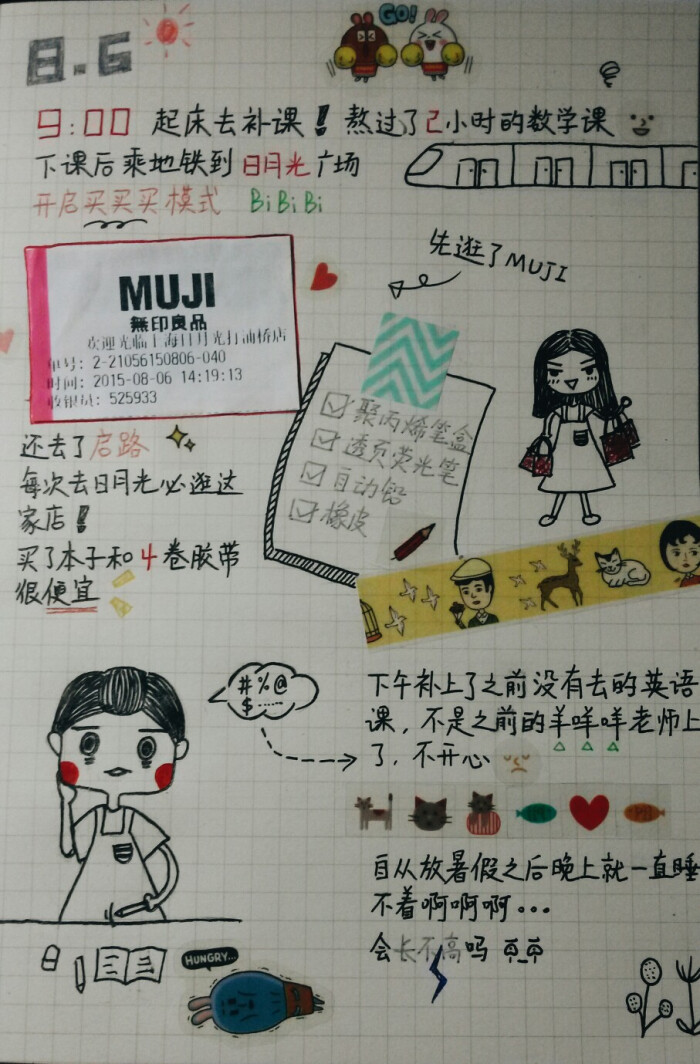 8.6
GO!
9:00 起床去补课! 熬过了2小时的数学课
下课后乘地铁到日月光广场
开启买买买模式 BiBiBi
先逛了MUJI
MUJI
無印良品
欢迎光临上海日月光打浦桥店
单号: 2-21056150806-040
时间: 2015-08-06 14:19:13
收银员: 525933
聚丙烯笔盒
透页荧光笔
自动铅
橡皮
还去了启路
每次去日月光必逛这
家店!
买了本子和4卷胶带
很便宜
#%@
$
下午补上了之前没有去的英语
课,不是之前的羊咩咩老师上
了,不开心
自从放暑假之后晚上就一直睡
不着啊啊啊...
会长不高吗
HUNGRY...